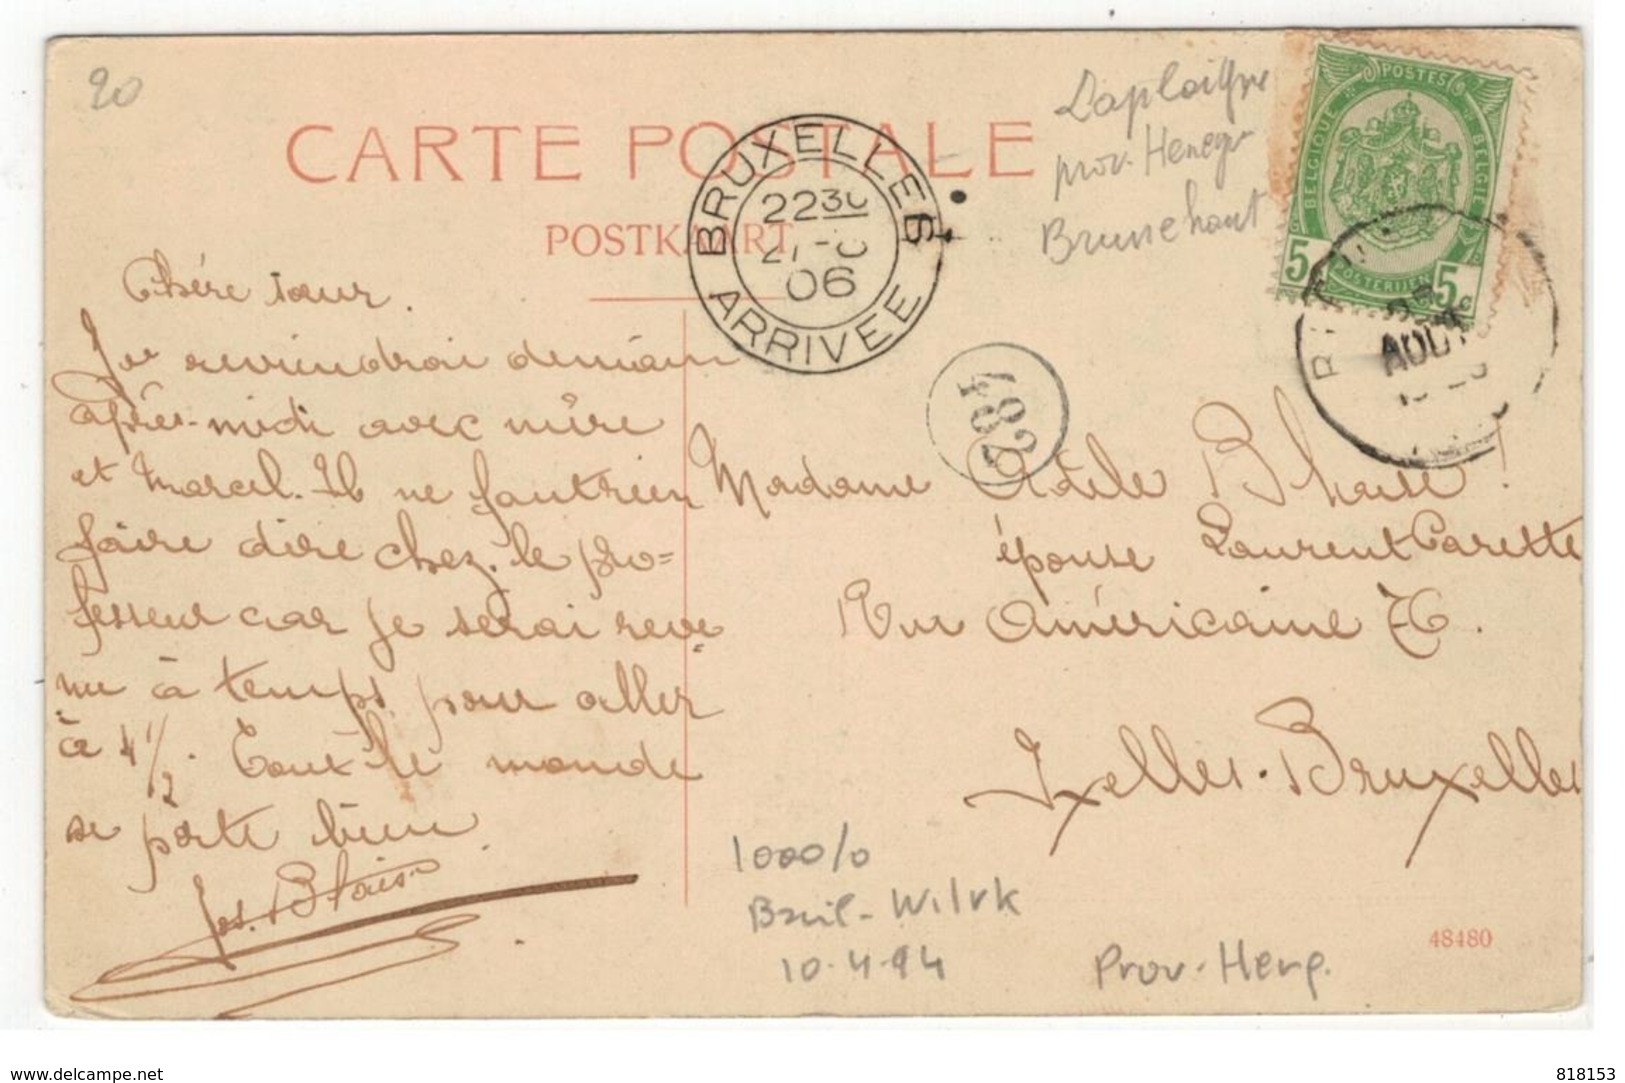 20
CARTE POSTALE
POSTKAART
BRUXELLES
2230
06
ARRIVEE
Laploigne
prov. Heneg
Brunehaut
BELGIQUE POSTES BELGIE
5 POSTERIJEN 5c
AOUT
482
Chére sœur.
Je reviendrai demain
après-midi avec mère
et Marcel. Il ne faut rien
faire dire chez le pro=
fesseur car je serai reve=
nu à temps pour aller
à 4 1/2. Tout le monde
se porte bien.
Jos. Blaise
Madame Adèle Blaise!
épouse Laurent Carette
Rue Américaine
Ixelles-Bruxelles
1000/0
Wilrk
10-4-94
Prov. Heng.
48480
www.delcampe.net
818153